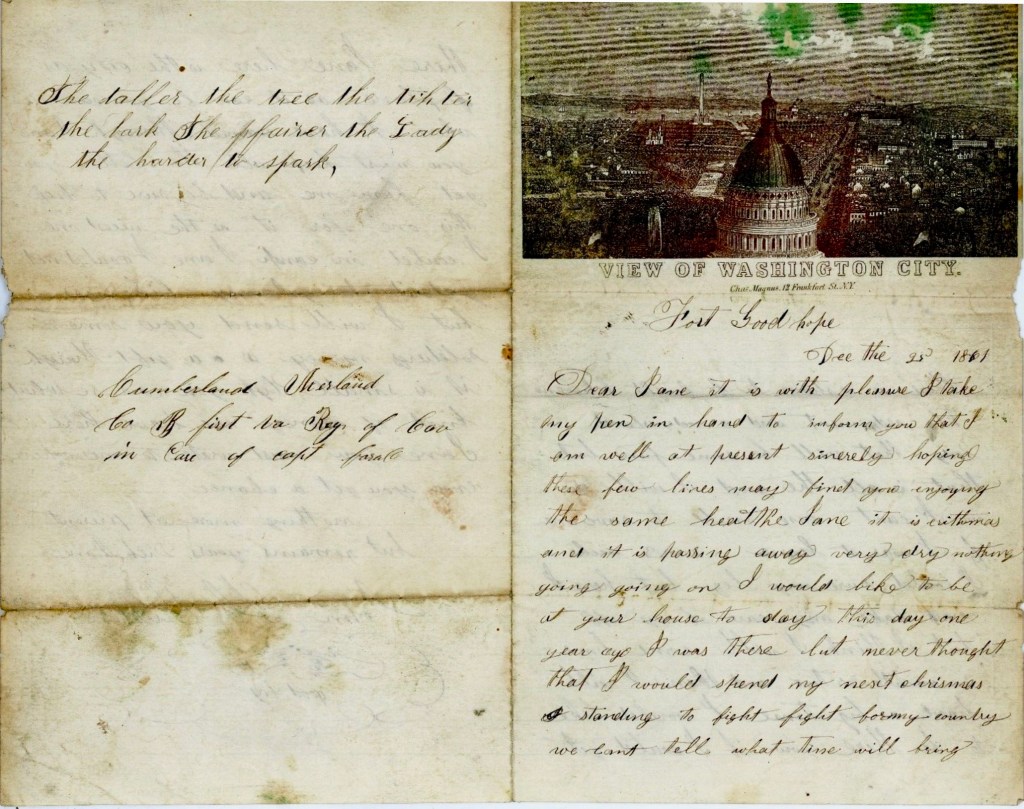 The taller the tree the tihter
the bark The pfairer the Lady
the harder to spark,
Cumberland Merland
Co B first va Reg of Cav
in Care of capt
VIEW OF WASHINGTON CITY.
Chas. Magnus, 12 Frankfort St. N.Y
Fort Good hope
Dec the 25 1861
Dear Jane it is with pleasure I take
my pen in hand to inform you that I
am well at present sinerely hoping
these few lines may find you enjoying
the same healthe Jane it is crithmas
and it is passing away very dry nothing
going going on I would like to be
at your house to day this day one
year ago I was there but never thought
that I would spend my nesxt chrismas
standing to fight fight for my country
we cant tell what time will bring